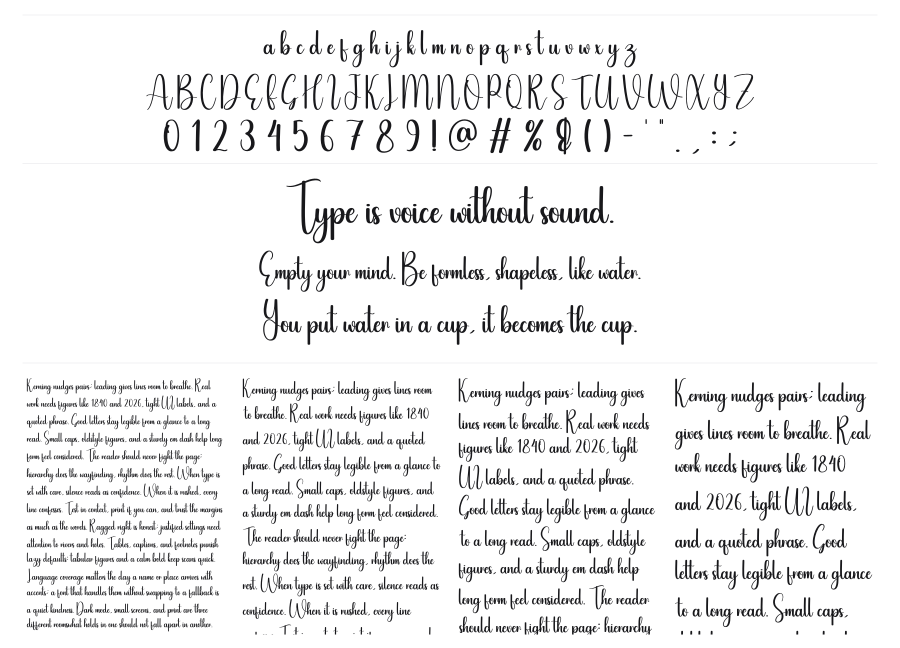 a b c d e f g h i j k l m n o p q r s t u v w x y z
A B C D E F G H I J K L M N O P Q R S T U V W X Y Z
0 1 2 3 4 5 6 7 8 9 ! @ # % $ ( ) - ' " . , : ;
Type is voice without sound.
Empty your mind. Be formless, shapeless, like water.
You put water in a cup, it becomes the cup.
Kerning nudges pairs; leading gives lines room to breathe. Real
work needs figures like 1840 and 2026, tight UI labels, and a
quoted phrase. Good letters stay legible from a glance to a long
read. Small caps, oldstyle figures, and a sturdy em dash help long
form feel considered. The reader should never fight the page:
hierarchy does the wayfinding, rhythm does the rest. When type is
set with care, silence reads as confidence. When it is rushed, every
line confesses. Test in context, print if you can, and trust the margins
as much as the words. Ragged right is honest; justified settings need
attention to rivers and holes. Tables, captions, and footnotes punish
lazy defaults: tabular figures and a calm bold keep scans quick.
Language coverage matters the day a name or place arrives with
accents: a font that handles them without swapping to a fallback is
a quiet kindness. Dark mode, small screens, and print are three
different rooms: what holds in one should not fall apart in another.
Kerning nudges pairs; leading gives lines room
to breathe. Real work needs figures like 1840
and 2026, tight UI labels, and a quoted
phrase. Good letters stay legible from a glance to
a long read. Small caps, oldstyle figures, and
a sturdy em dash help long form feel considered.
The reader should never fight the page:
hierarchy does the wayfinding, rhythm does the
rest. When type is set with care, silence reads as
confidence. When it is rushed, every line
Kerning nudges pairs; leading gives
lines room to breathe. Real work needs
figures like 1840 and 2026, tight
UI labels, and a quoted phrase.
Good letters stay legible from a glance
to a long read. Small caps, oldstyle
figures, and a sturdy em dash help
long form feel considered. The reader
should never fight the page: hierarchy
Kerning nudges pairs; leading
gives lines room to breathe. Real
work needs figures like 1840
and 2026, tight UI labels,
and a quoted phrase. Good
letters stay legible from a glance
to a long read. Small caps,